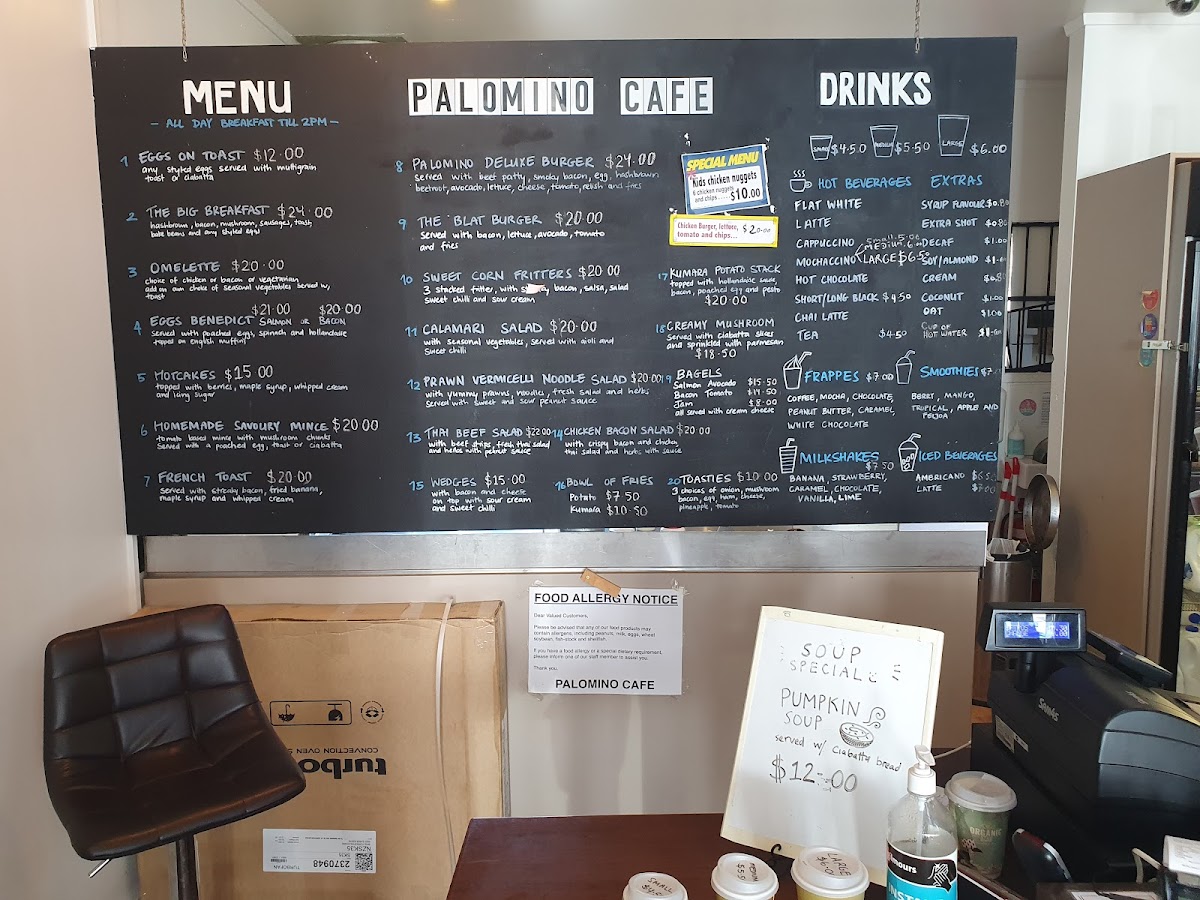 MENU
- ALL DAY BREAKFAST TILL 2PM -
1 EGGS ON TOAST $12.00
any styled eggs served with multigrain
toast or ciabatta
2 THE BIG BREAKFAST $24.00
hashbrown, bacon, mushroom, sausages, toast,
bake beans and any styled egg
3 OMELETTE $20.00
choice of chicken or bacon or vegetarian
add on own choice of seasonal vegetables served w,
toast
$21.00 $20.00
4 EGGS BENEDICT SALMON OR BACON
served with poached eggs, spinach and hollandaise
topped on english muffins
5 HOTCAKES $15.00
topped with berries, maple syrup, whipped cream
and icing sugar
6 HOMEMADE SAVOURY MINCE $20.00
tomato based mince with mushroom chunks
served with a poached egg, toast or ciabatta
7 FRENCH TOAST $20.00
served with streaky bacon, fried banana,
maple syrup and whipped cream
PALOMINO CAFE
8 PALOMINO DELUXE BURGER $24.00
served with beef patty, smoky bacon, egg, hashbrown
beetroot, avocado, lettuce, cheese, tomato, relish and fries
9 THE BLAT BURGER $20.00
Served with bacon, lettuce, avocado, tomato
and fries
10 SWEET CORN FRITTERS $20.00
3 stacked fritter, with bacon, salsa, salad
sweet chilli and sour cream
11 CALAMARI SALAD $20.00
with seasonal vegetables, served with aioli and
sweet chilli
12 PRAWN VERMICELLI NOODLE SALAD $20.00
with yummy prawns, noodles, fresh salad and herbs
Served with sweet and sour peanut sauce
13 THAI BEEF SALAD $22.00
with beef strips, fresh thai salad
and herbs with peanut sauce
14 CHICKEN BACON SALAD $20.00
with crispy bacon and chicken,
thai salad and herbs with sauce
15 WEDGES $15.00
with bacon and cheese
on top with sour cream
and sweet chilli
16 BOWL OF FRIES
Potato $7.50
Kumara $10.50
SPECIAL MENU
Kids chicken nuggets
6 chicken nuggets
and chips ..... $10.00
Chicken Burger, lettuce,
tomato and chips... $20.00
17 KUMARA POTATO STACK
topped with hollandaise sauce,
bacon, poached egg and pesto
$20.00
18 CREAMY MUSHROOM
Served with ciabatta slices
and sprinkled with parmesan
$18.50
19 BAGELS
Salmon Avocado $15.50
Bacon Tomato $14.50
Jam $8.00
all served with cream cheese
20 TOASTIES $10.00
3 choices of onion, mushroom
bacon, egg, ham, cheese,
pineapple, tomato
DRINKS
SMALL $4.50 MEDIUM $5.50 LARGE $6.00
HOT BEVERAGES
FLAT WHITE
LATTE
CAPPUCCINO
MOCHACCINO
SMALL 5.00
MEDIUM 6.00
LARGE $6.50
HOT CHOCOLATE
SHORT/LONG BLACK $4.50
CHAI LATTE
TEA $4.50
EXTRAS
SYRUP FLAVOUR $0.80
EXTRA SHOT $0.80
DECAF $1.00
SOY/ALMOND
CREAM
COCONUT $1.00
OAT $1.00
CUP OF
HOT WATER
FRAPPES $7.00
COFFEE, MOCHA, CHOCOLATE,
PEANUT BUTTER, CARAMEL,
WHITE CHOCOLATE
SMOOTHIES
BERRY, MANGO,
TROPICAL, APPLE AND
FEIJOA
MILKSHAKES
$7.50
BANANA, STRAWBERRY,
CARAMEL, CHOCOLATE,
VANILLA, LIME
ICED BEVERAGES
AMERICANO $6.50
LATTE
FOOD ALLERGY NOTICE
Dear Valued Customers,
Please be advised that any of our food products may
contain allergens, including peanuts, milk, eggs, wheat
soybean, fish-stock and shellfish.
If you have a food allergy or a special dietary requirement,
please inform one of our staff member to assist you.
Thank you.
PALOMINO CAFE
SOUP
SPECIAL
PUMPKIN
SOUP
served w/ ciabatta bread
$12-.00
CONVECTION OVEN
turbo
NZSK35
2370948
TURBOFAN
Sam4s
ORGANIC
SMALL
$4.50
MEDIUM
5.50
LARGE
$6.00